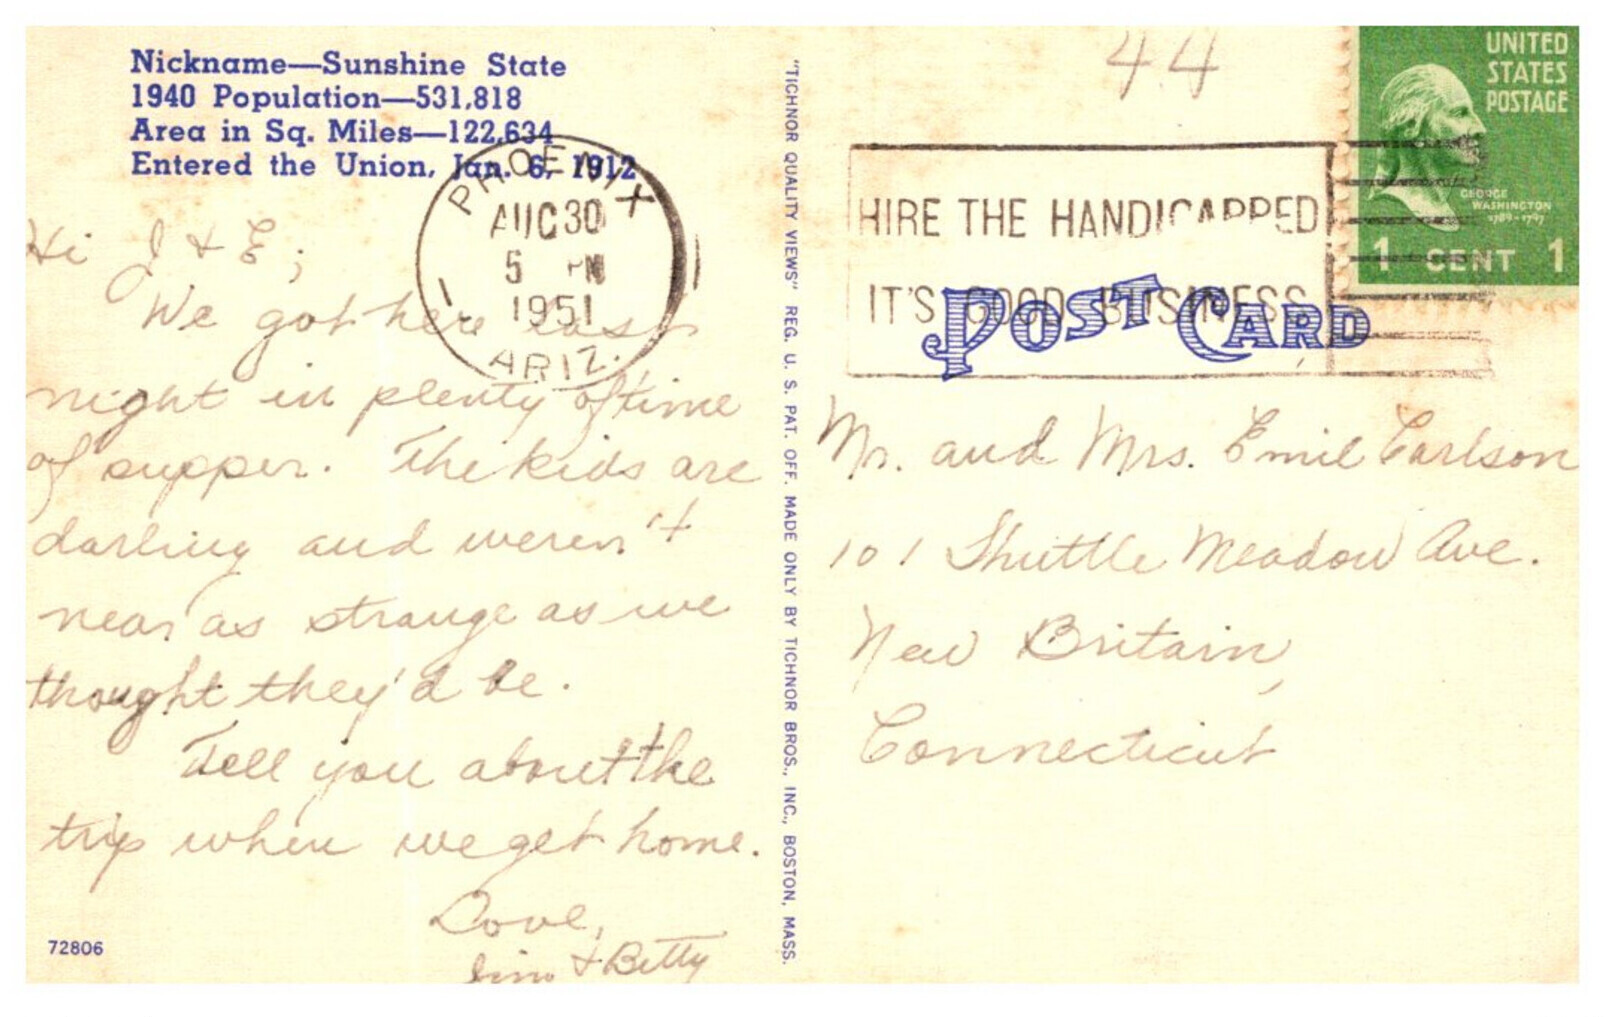 Nickname—Sunshine State
1940 Population—531,818
Area in Sq. Miles—122,634
Entered the Union, Jan. 6, 1912
PHOENIX
AUG 30
5 PM
1951
ARIZ.
Hi J & E;
We got here last
night in plenty of time
of supper. The kids are
darling and weren't
near as strange as we
thought they'd be.
Tell you about the
trip when we get home.
Love,
Jim & Betty
72806
"TICHNOR QUALITY VIEWS" REG. U. S. PAT. OFF. MADE ONLY BY TICHNOR BROS., INC., BOSTON, MASS.
44
UNITED
STATES
POSTAGE
GEORGE
WASHINGTON
1789-1797
1 CENT 1
HIRE THE HANDICAPPED
IT'S GOOD BUSINESS
POST CARD
Mr. and Mrs. Emil Carlson
101 Shuttle Meadow Ave.
New Britain,
Connecticut